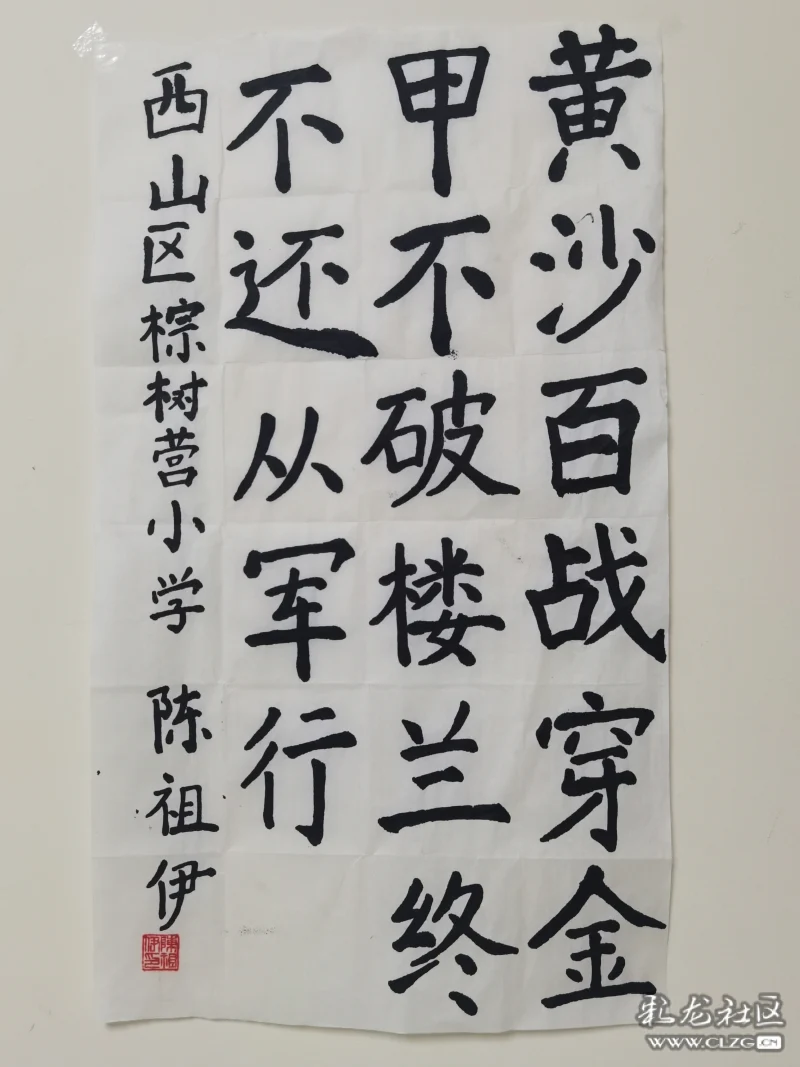 黄沙百战穿金
甲不破楼兰终
不还从军行
西山区棕树营小学 陈祖伊
彩龙社区
WWW.CLZG.CN